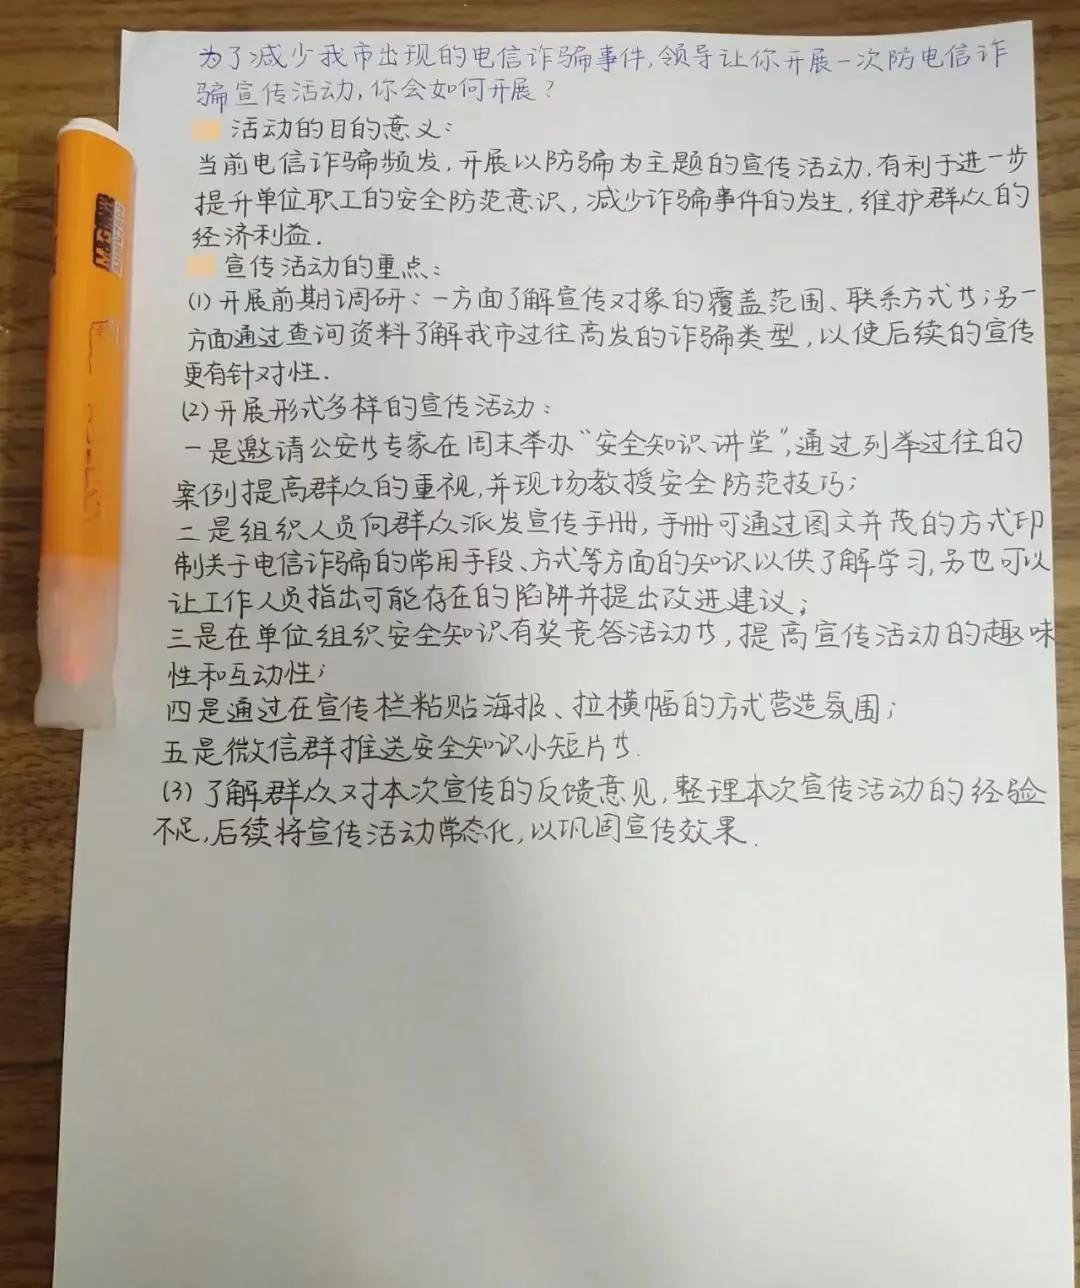 为了减少我市出现的电信诈骗事件,领导让你开展一次防电信诈
骗宣传活动,你会如何开展?
活动的目的意义:
当前电信诈骗频发,开展以防骗为主题的宣传活动,有利于进一步
提升单位职工的安全防范意识,减少诈骗事件的发生,维护群众的
经济利益.
宣传活动的重点:
(1)开展前期调研:一方面了解宣传对象的覆盖范围、联系方式等;另一
方面通过查询资料了解我市过往高发的诈骗类型,以使后续的宣传
更有针对性.
(2)开展形式多样的宣传活动:
一是邀请公安等专家在周末举办“安全知识讲堂”,通过列举过往的
案例提高群众的重视,并现场教授安全防范技巧;
二是组织人员向群众派发宣传手册,手册可通过图文并茂的方式印
制关于电信诈骗的常用手段、方式等方面的知识以供了解学习,另也可以
让工作人员指出可能存在的陷阱并提出改进建议;
三是在单位组织安全知识有奖竞答活动等,提高宣传活动的趣味
性和互动性;
四是通过在宣传栏粘贴海报、拉横幅的方式营造氛围;
五是微信群推送安全知识小短片等.
(3)了解群众对本次宣传的反馈意见,整理本次宣传活动的经验
不足,后续将宣传活动常态化,以巩固宣传效果.
M&G